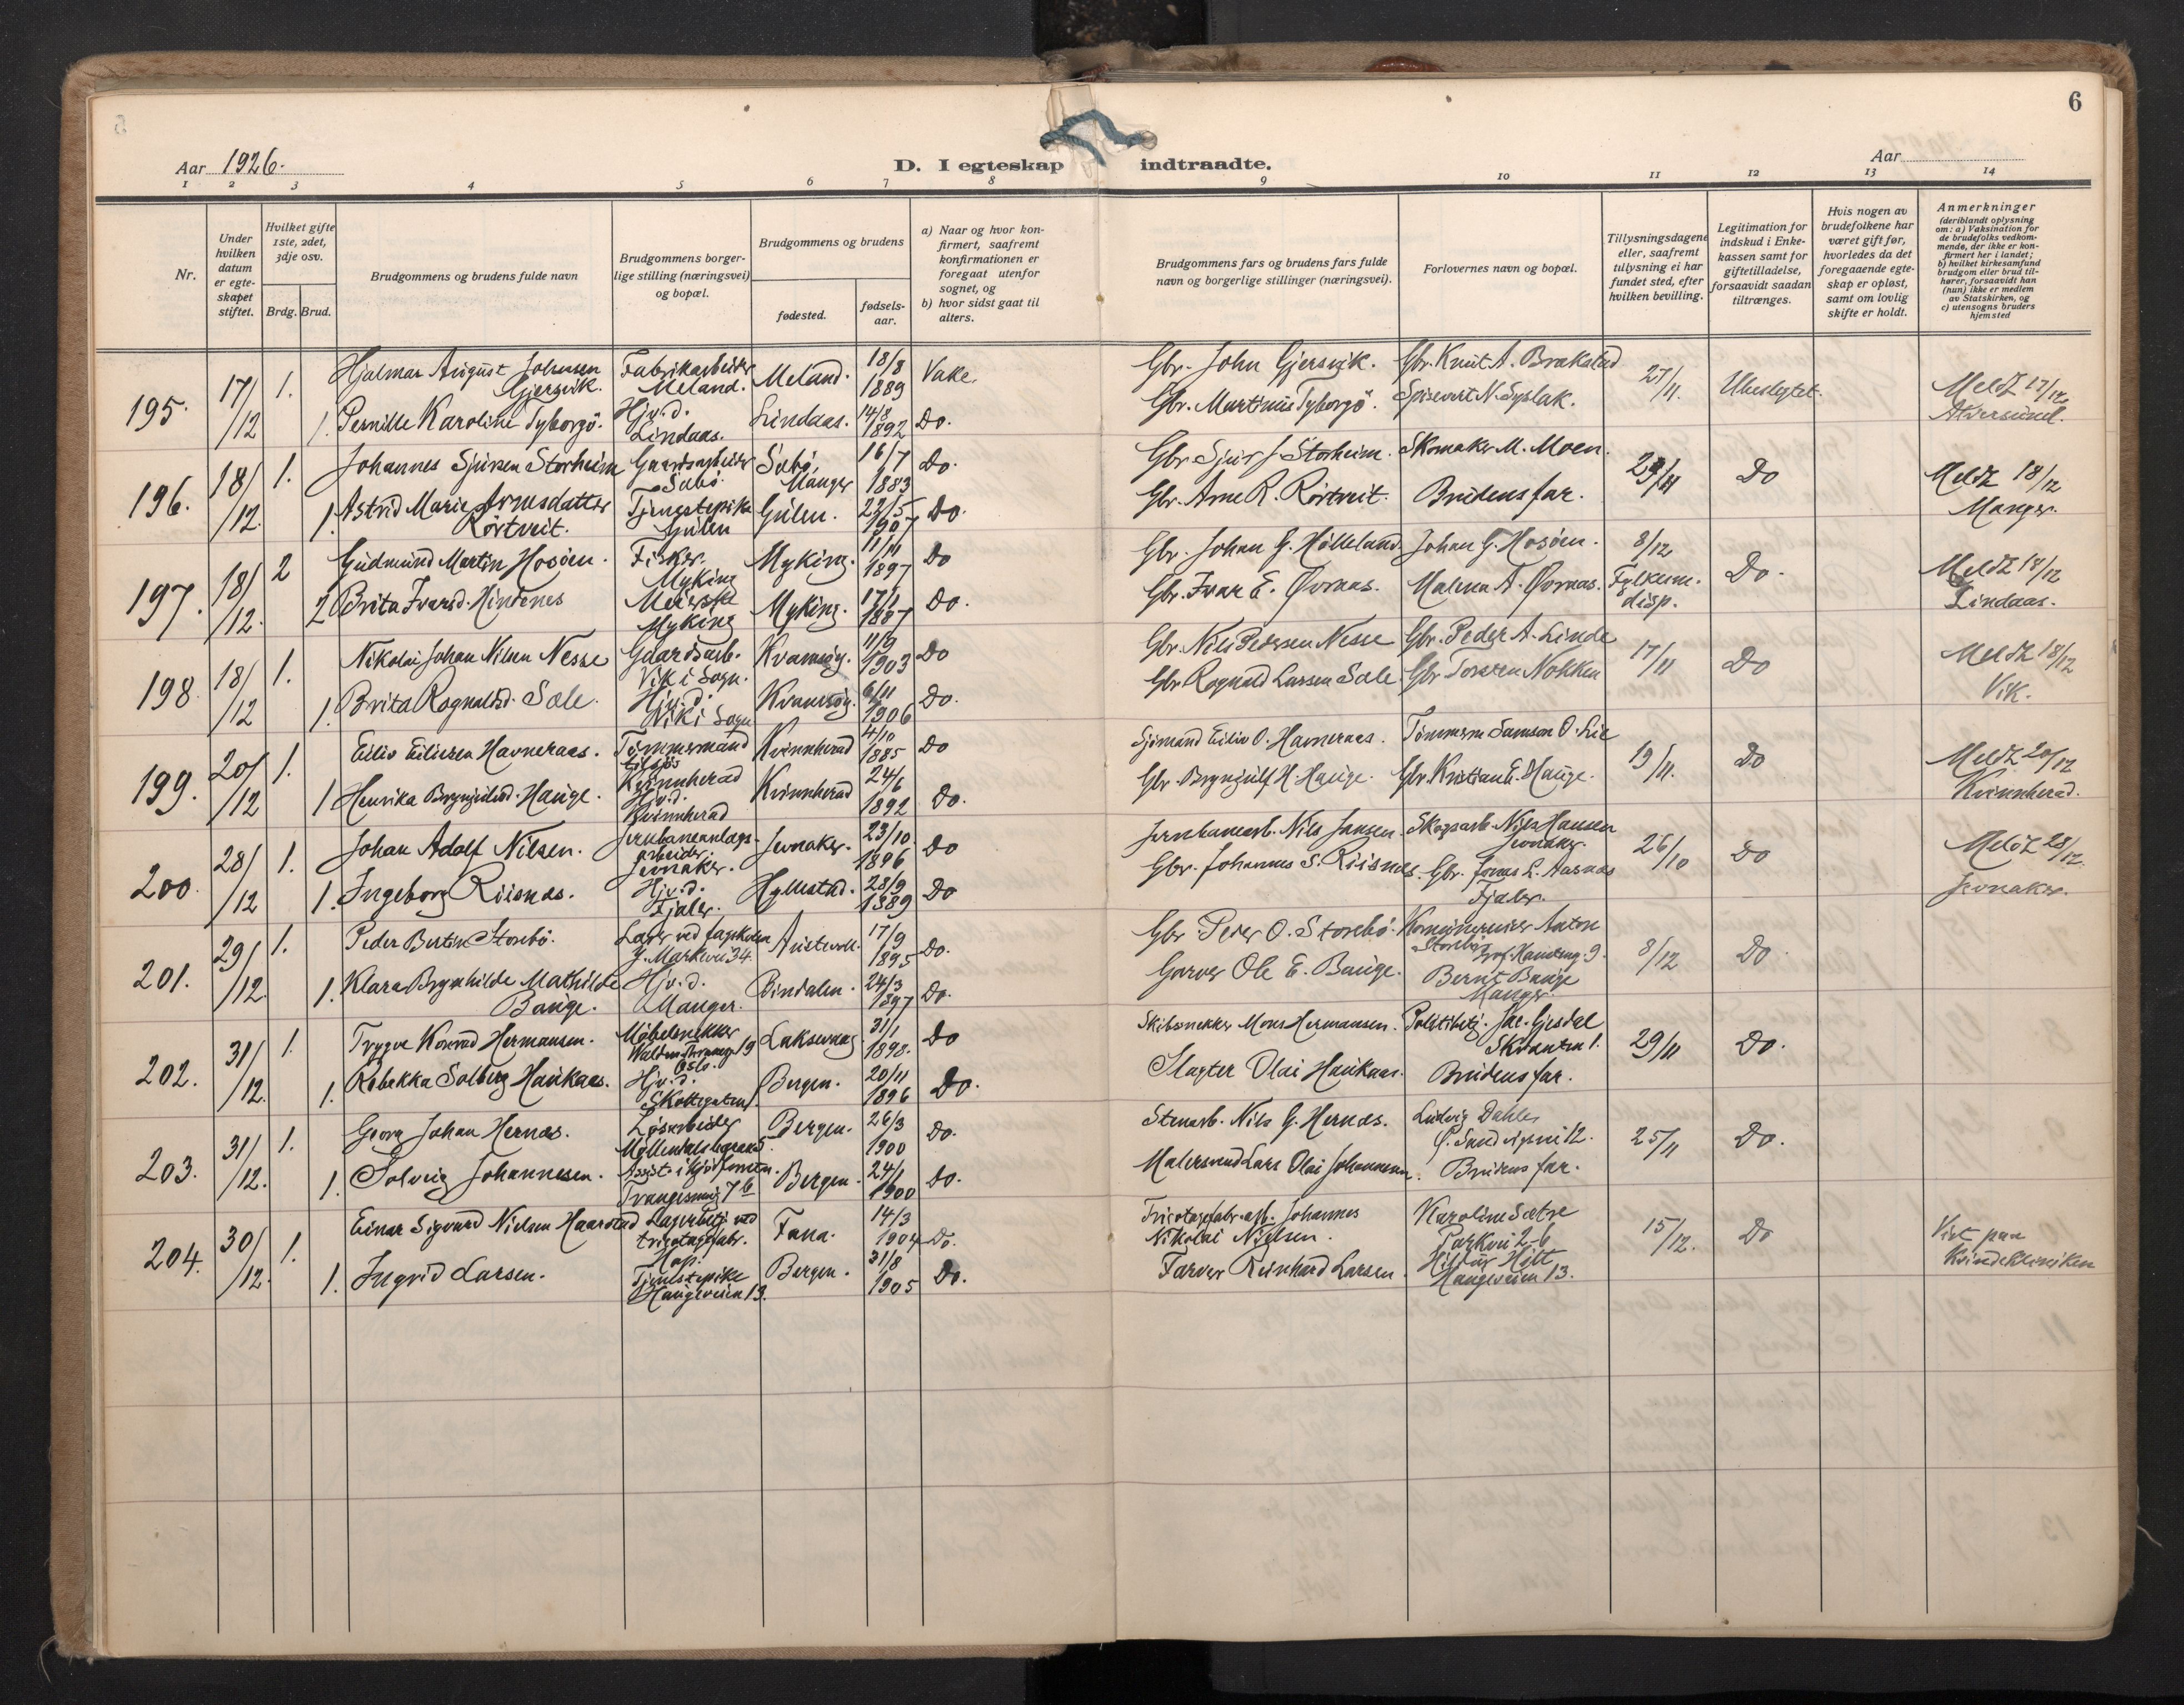 6
Aar 1926.
D. I egteskap indtraadte.
Aar
1 2 3 4 5 6 7 8 9 10 11 12 13 14
Nr.
Under hvilken datum er egteskapet stiftet.
Hvilket gifte 1ste, 2det, 3dje osv.
Brdg. Brud.
Brudgommens og brudens fulde navn
Brudgommens borgerlige stilling (næringsvei) og bopæl.
Brudgommens og brudens
fødested.
fødselsaar.
a) Naar og hvor konfirmert, saafremt konfirmationen er foregaat utenfor sognet, og
b) hvor sidst gaat til alters.
Brudgommens fars og brudens fars fulde navn og borgerlige stillinger (næringsvei).
Forlovernes navn og bopæl.
Tillysningsdagene eller, saafremt tillysning ei har fundet sted, efter hvilken bevilling.
Legitimation for indskud i Enkekassen samt for giftetilladelse, forsaavidt saadan tiltrænges.
Hvis nogen av brudefolkene har været gift før, hvorledes da det foregaaende egteskap er opløst, samt om lovlig skifte er holdt.
Anmerkninger
(deriblandt oplysning om: a) Vaksination for de brudefolks vedkommende, der ikke er konfirmert her i landet; b) hvilket kirkesamfund brudgom eller brud tilhører, forsaavidt han (hun) ikke er medlem av Statskirken, og c) utensogns bruders hjemsted
195. 17/12 1. Hjalmar August Johnsen Gjersvik. Fabrikarbeider Meland. Meland. 18/8 1889 Vake. Gbr. John Gjersvik. Gbr. Knut A. Brakstad 27/11. Ubeslegtet. Meldt 17/12 Alversund.
1. Pernille Karoline Tyborgö. Hjv.d. Lindaas. Lindaas. 14/8 1892 Do. Gbr. Martinus Tyborgö. N. Syslak.
196. 18/12. 1. Johannes Sjursen Storheim Gaardsarbeider Sæbö. Sæbö, Manger 16/7 1883 Do. Gbr. Sjur J. Storheim. Skomaker M. Moen. Do Meldt 18/12 Manger.
1. Astrid Marie Arnesdatter Rörtveit. Tjenestepike Gulen Gulen. 22/5 1907 Do. Gbr. Arne R. Rörtveit. Brudens far.
197. 18/12. 2 Gudmund Martin Hosöen. Fisker. Myking Myking. 11/11 1897 Do Gbr. Johan G. Hölleland. Johan G. Hosöen. 8/12 Fylkesm. disp. Do. Meldt 18/12 Lindaas.
2 Brita Ivarsd. Hindenes Meierske Myking Myking. 17/1 1887 Do. Gbr. Ivar E. Øvraas. Malena A. Øvraas.
198. 18/12 1. Nikolai Johan Nilsen Nesse Gaardsarb. Vik i Sogn. Kvamsöy. 11/9 1903 Do Gbr. Nils Pedersen Nesse Gbr. Peder A. Linde 17/11 Do Meldt 18/12 Vik.
1. Brita Ragnaldsd. Sæle. Hjv.d. Vik i Sogn Kvamsöy. 6/11 1906 Do. Gbr. Ragnald Larsen Sæle Gbr. Torsten Nokken
199. 20/12 1. Eiliv Eilivsen Havneraas. Tömmermand Kvinnherad Kvinnherad 4/10 1885 Do Sjömand Eiliv O. Havneraas. Tömmerm Samson O. Lie 19/11. Do Meldt 20/12 Kvinnherad.
1 Henrika Brynjulvsd. Hauge. Hjv.d. Kvinnherad Kvinnherad 24/6 1892 Do. Gbr. Brynjulf H. Hauge. Gbr. Kristian E. Hauge.
200. 28/12 1. Johan Adolf Nilsen. Jernbaneanlægsarbeider. Jevnaker. Jevnaker. 23/10. 1896 Do Jernbanearb. Nils Jansen. Skogsarb. Nils Hansen Jevnaker. 26/10 Do Meldt 28/12. Jevnaker.
1. Ingeborg Riisnæs. Hjv.d. Fjaler. Hyllestad. 28/9 1889 Do Gbr. Johannes S. Riisnæs. Gbr. Jonas L. Aasnæs Fjaler.
201. 29/12. 1. Peder Bertin Storebö. Lærer ved fagskolen Y. Markvei 34. Austevoll. 17/9 1895 Do. Gbr Peder O. Storebö. Anton Storebö 8/12 Do
1. Klara Brynhilde Mathilde Bauge. Hjv.d. Manger. Bindalen. 24/3 1897 Do. Garver Ole E. Bauge. Bernt Bauge Manger.
202. 31/12. 1. Trygve Konrad Hermansen. Möbelsnekker 19 Oslo. Laksevaag 31/1 1898. Do Skibssnekker Mons Hermansen. Politibetj. Jac. Gjesdal Skivebakken 1. 29/11 Do.
1. Rebekka Solberg Haukaas. Hjv.d. Skottegaten Bergen. 20/11 1896 Do. Slagter Olai Haukaas. Brudens far.
203. 31/12. 1. Georg Johan Hernæs. Lösarbeider Möllendalsbagen Bergen. 26/3 1900 Do. Stenarb. Nils G. Hernæs. Ludvig Dahle, Sandviksvei 12. 25/11 Do.
1. Solveig Johannesen. Assist. i kjöttforretn. 7 b Bergen. 24/1 1900 Do. Malersvend Lars Olai Johannesen. Brudens far.
204. 30/12. 1. Einar Sigvard Nielsen Haarstad Lagerbetj. ved tricotagefabr. Hop. Fana. 14/3 1904 Do. Tricotagefabr.arb. Johannes Nikolai Nielsen. Karoline Sætre Parkvei 26 15/12. Do Viet paa Kvindeklinikken
1. Ingrid Larsen. Tjenestepike Haugeveien 13. Bergen. 31/8 1905 Do. Farver Reinhard Larsen. Hildur Hitt Haugeveien 13.